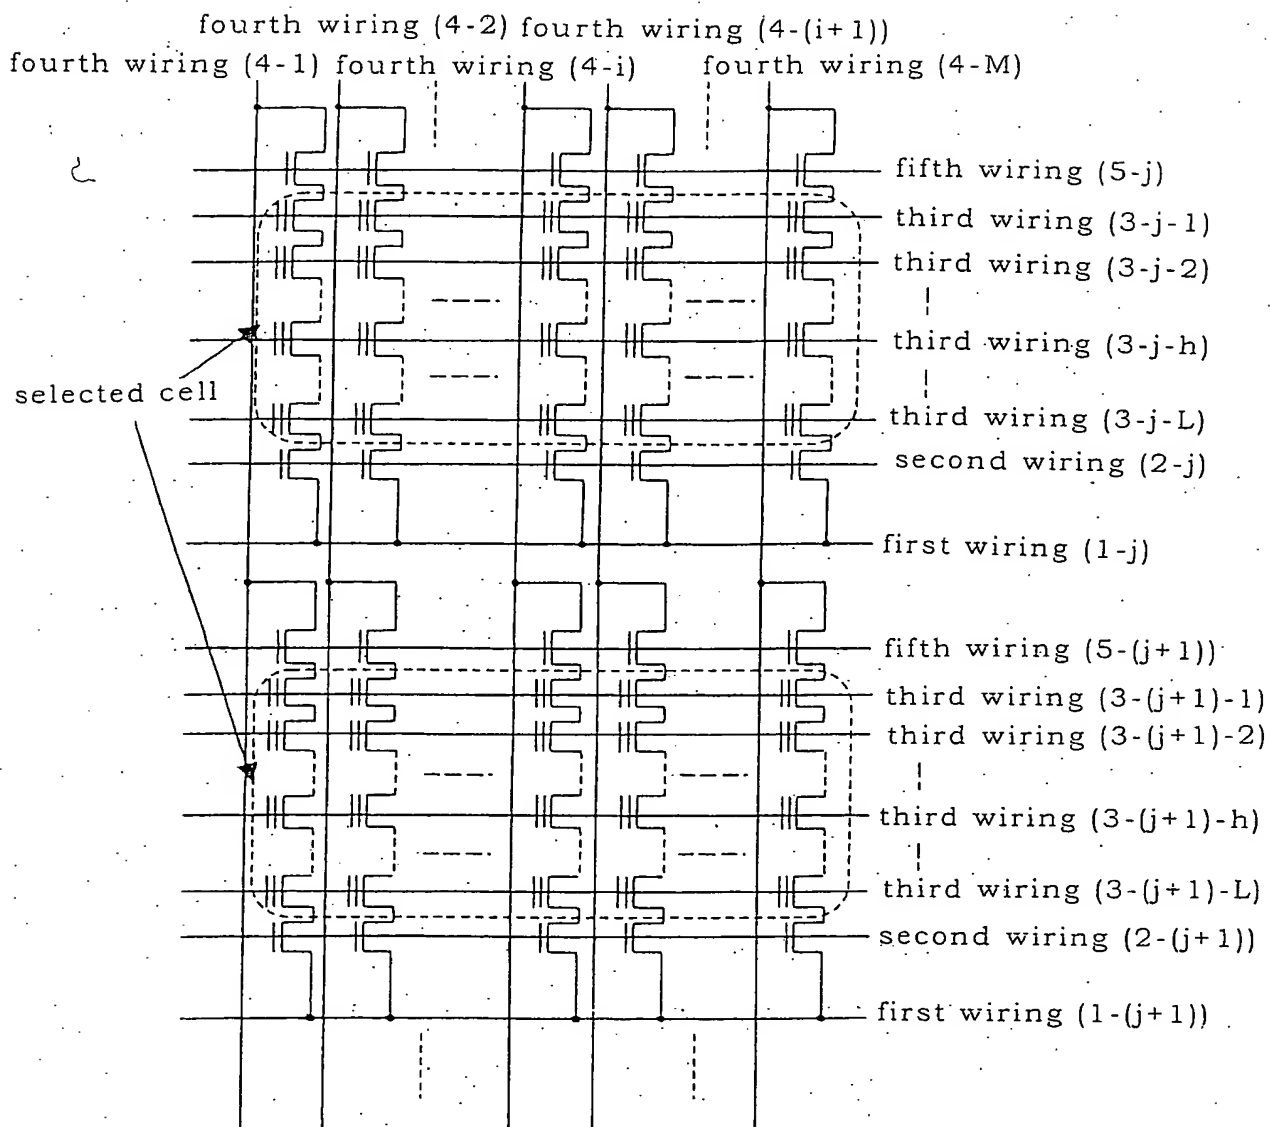 fourth wiring (4-2) fourth wiring (4-(i+1))
fourth wiring (4-1) fourth wiring (4-i) fourth wiring (4-M)
fifth wiring (5-j)
third wiring (3-j-1)
third wiring (3-j-2)
third wiring (3-j-h)
selected cell
third wiring (3-j-L)
second wiring (2-j)
first wiring (1-j)
fifth wiring (5-(j+1))
third wiring (3-(j+1)-1)
third wiring (3-(j+1)-2)
third wiring (3-(j+1)-h)
third wiring (3-(j+1)-L)
second wiring (2-(j+1))
first wiring (1-(j+1))